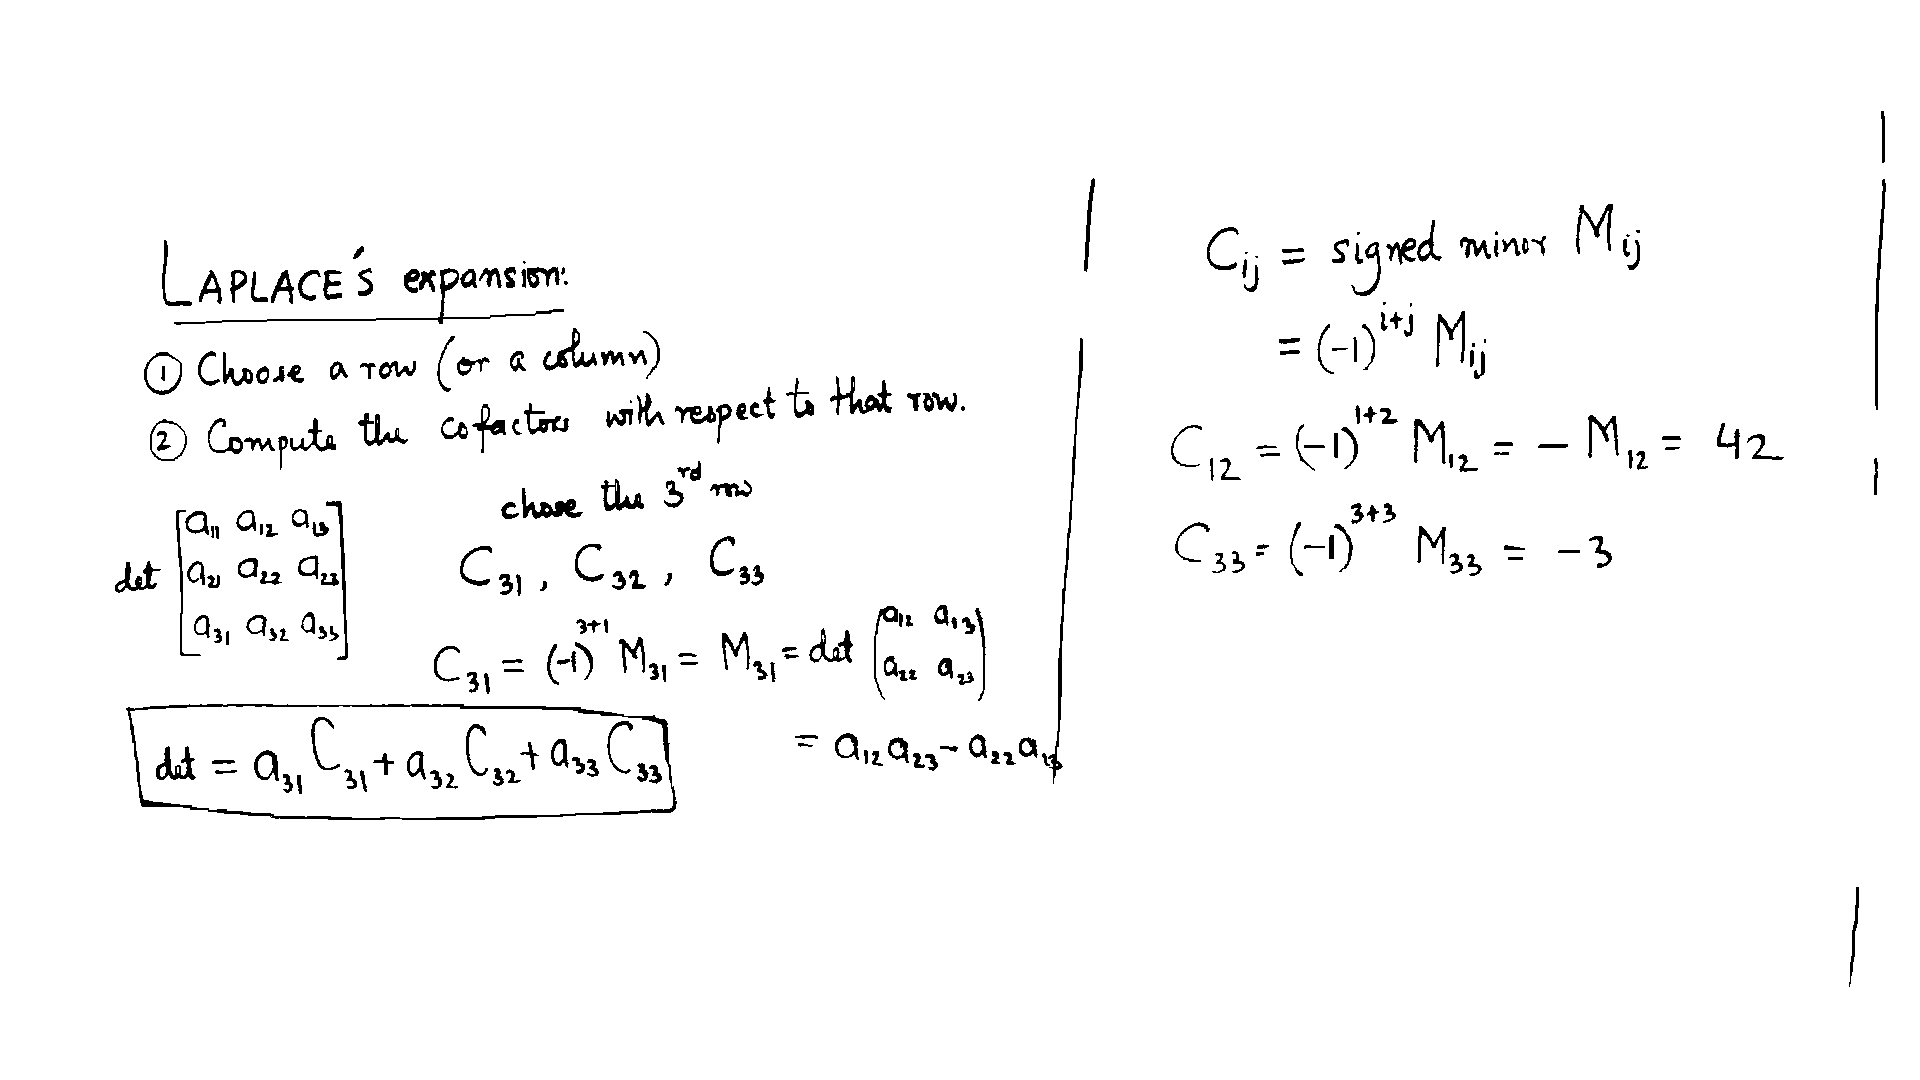 LAPLACE'S expansion:
① Choose a row (or a column)
② Compute the cofactors with respect to that row.
chose the 3rd row
det [a11 a12 a13
a21 a22 a23
a31 a32 a33]
C31, C32, C33
C31 = (-1)^3+1 M31 = M31 = det (a12 a13
a22 a23)
= a12 a23 - a22 a13
det = a31 C31 + a32 C32 + a33 C33
Cij = signed minor Mij
= (-1)^i+j Mij
C12 = (-1)^1+2 M12 = - M12 = 42
C33 = (-1)^3+3 M33 = -3